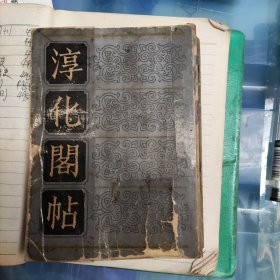 淳化閣帖